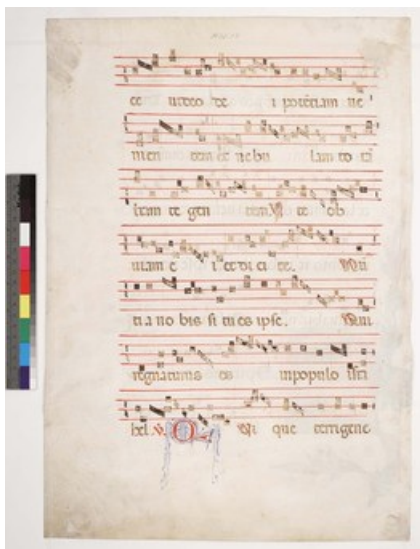 ce video de i potētiam ve
nien tem et nebu lam to tā
terram te gen tem. Ite ob
viam e i et di ci te. Nū
ti a no bis si tu es ipse. Qui
regnaturus es in populo isra
hel. v. Qui que terrigene